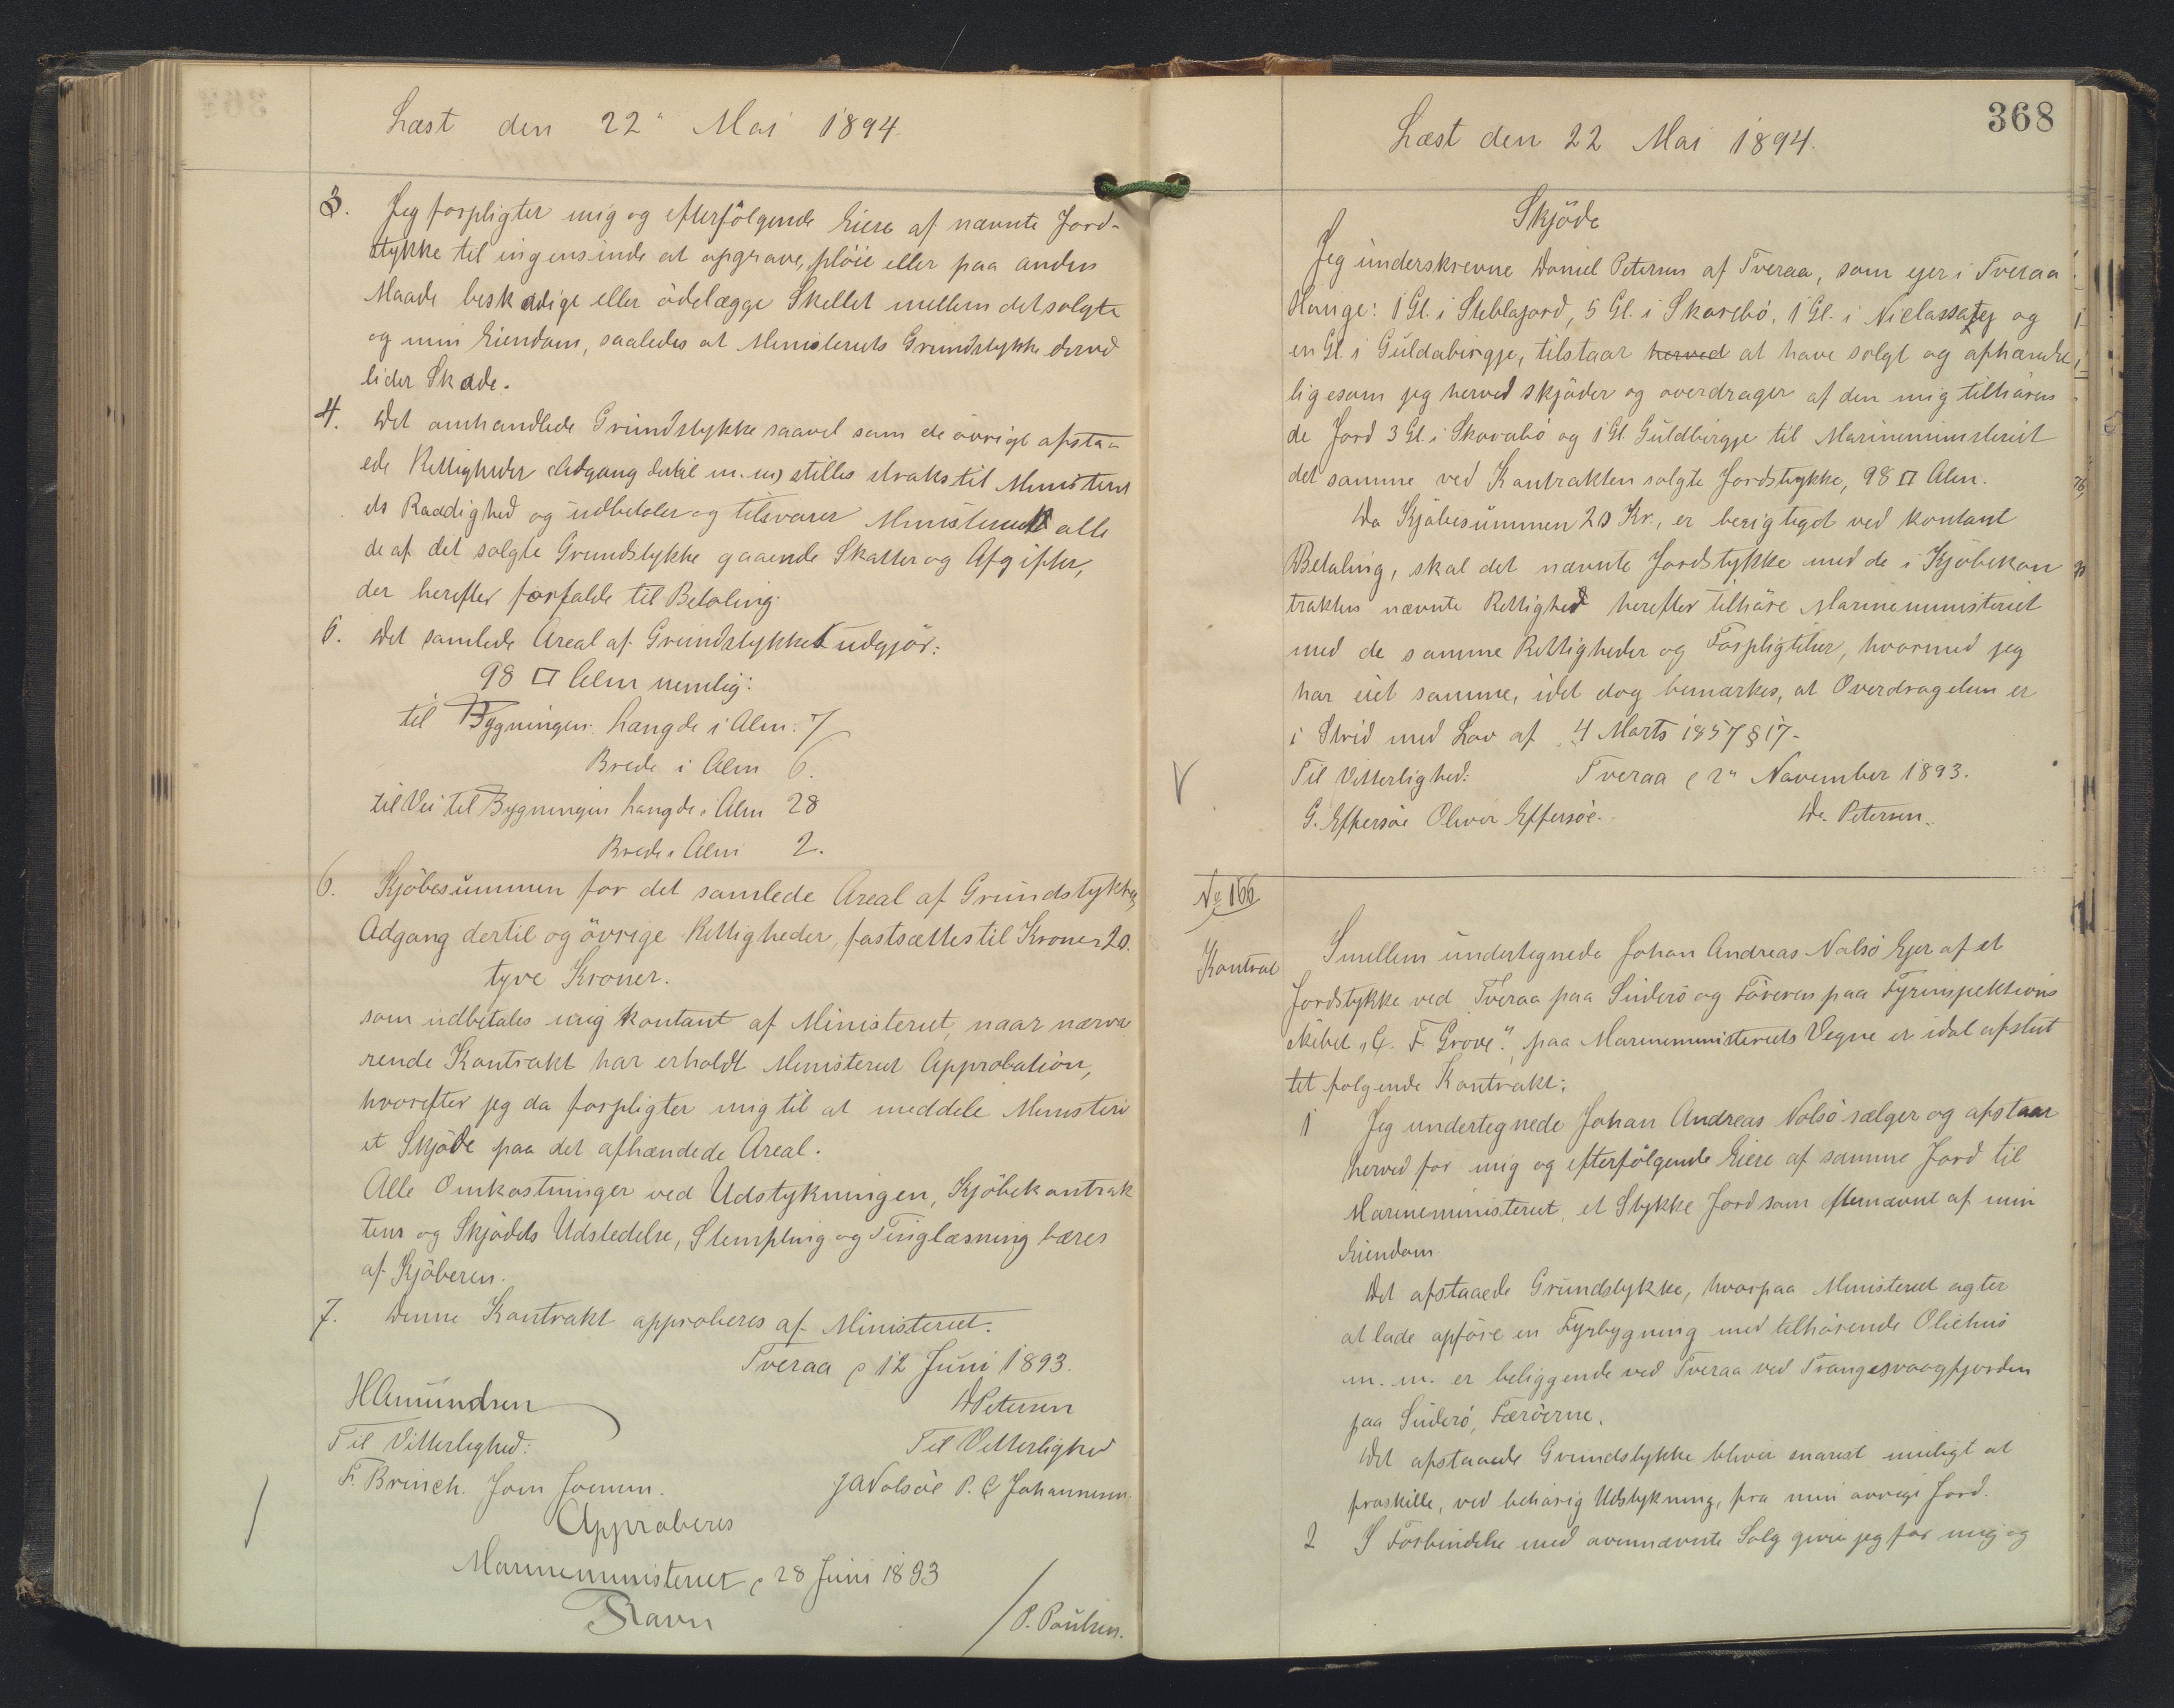 Læst den 22" Mai 1894.
3. Jeg forpligter mig og efterfölgende Eiere af nævnte Jord-
stykke til ingensinde at opgrave, plöie eller paa anden
Maade beskadige eller ödelægge Skellet mellem det solgte
og min Eiendom, saaledes at Ministeriets Grundstykke derved
lider Skade.
4. Det omhandlede Grundstykke saavel som de övrige afstaa-
ede Rettigheder (Adgang dertil m.m) stilles straks til Ministeri
ets Raadighed og udbetaler og tilsvarer Ministeriet alle
de af det solgte Grundstykke gaaende Skatter og Afgifter,
der herefter forfalde til Betaling.
5. Det samlede Areal af Grundstykket udgjör:
98 □ Alen nemlig:
til Bygningen. Længde i Alen: 7
Brede i Alen 6.
til Vei til Bygningen Længde i Alen 28
Brede i Alen 2.
6. Kjöbesummen for det samlede Areal af Grundstykket,
Adgang dertil og övrige Rettigheder, fastsættes til Kroner 20.
tyve Kroner.
som udbetales mig kontant af Ministeriet, naar nærvæ
rende Kontrakt har erholdt Ministeriet Approbation,
hvorefter jeg da forpligter mig til at meddele Ministeri
et Skjöde paa det afhændede Areal.
Alle Omkostninger ved Udstykningen, Kjöbekontrak
tens og Skjödets Udstedelse, Stempling og Tinglæsning bæres
af Kjöberen.
7. Denne Kontrakt approberes af Ministeriet.
Tveraa d 12 Juni 1893.
HAmundsen DPetersen
Til Vitterlighed: Til Vitterlighed
F. Brinch. Joen Joensen. JANolsöe P. C Johannesen.
Approberes
Marineministeriet d 28 Juni 1893
Ravn
/ P. Poulsen.
368
Læst den 22 Mai 1894.
Skjöde
Jeg underskrevne Daniel Petersen af Tveraa, som ejer i Tveraa
Hauge: 1 Gl. i Steblajord, 5 Gl. i Skorebö, 1 Gl. i Niclassatej og
en Gl. i Guldabirgje, tilstaar herved at have solgt og afhændet
ligesom jeg herved skjöder og overdrager af den mig tilhören
de Jord 3 Gl. i Skorabö og 1 Gl. Guldbirgje til Marineministeriet
det samme ved Kontrakten solgte Jordstykke, 98 □ Alen.
Da Kjöbesummen 20 Kr., er berigtiget ved kontant
Betaling, skal det nævnte Jordstykke med de i Kjöbekon
trakten nævnte Rettighed herefter tilhöre Marineministeriet
med de samme Rettigheder og Forpligtelser, hvormed jeg
har eiet samme, idet dog bemærkes, at Overdragelsen er
i Strid med Lov af 4 Marts 1857 § 17-
Til Vitterlighed: Tveraa d 2" November 1893.
G. Effersöe Oliver Effersöe. Da. Petersen.
No 166
Kontrac Imellem undertegnede Johan Andreas Nolsö Ejer af et
Jordstykke ved Tveraa paa Suderö og Föreren paa Fyrinspektions
skibet "C. F. Grove", paa Marineministeriets Vegne er idal afslut
tet folgende Kontrakt:
1 Jeg undertegnede Johan Andreas Nolsö sælger og afstaar
herved for mig og efterfölgende Eiere af samme Jord til
Marineministeriet, et Stykke Jord som ftnævnt af min
Eiendom
Det afstaaede Grundstykke, hvorpaa Ministeriet agter
at lade opföre en Fyrbygning med tilhörende Oliehus
m. m. er beliggende ved Tveraa ved Trangesvaagfjorden
paa Suderö, Færöerne.
Det afstaaede Grundstykke bliver snarest muligt at
fraskille, ved behörig Udstykning, fra min övrige Jord.
2 I Forbindelse med ovennævnte Salg giver jeg for mig og